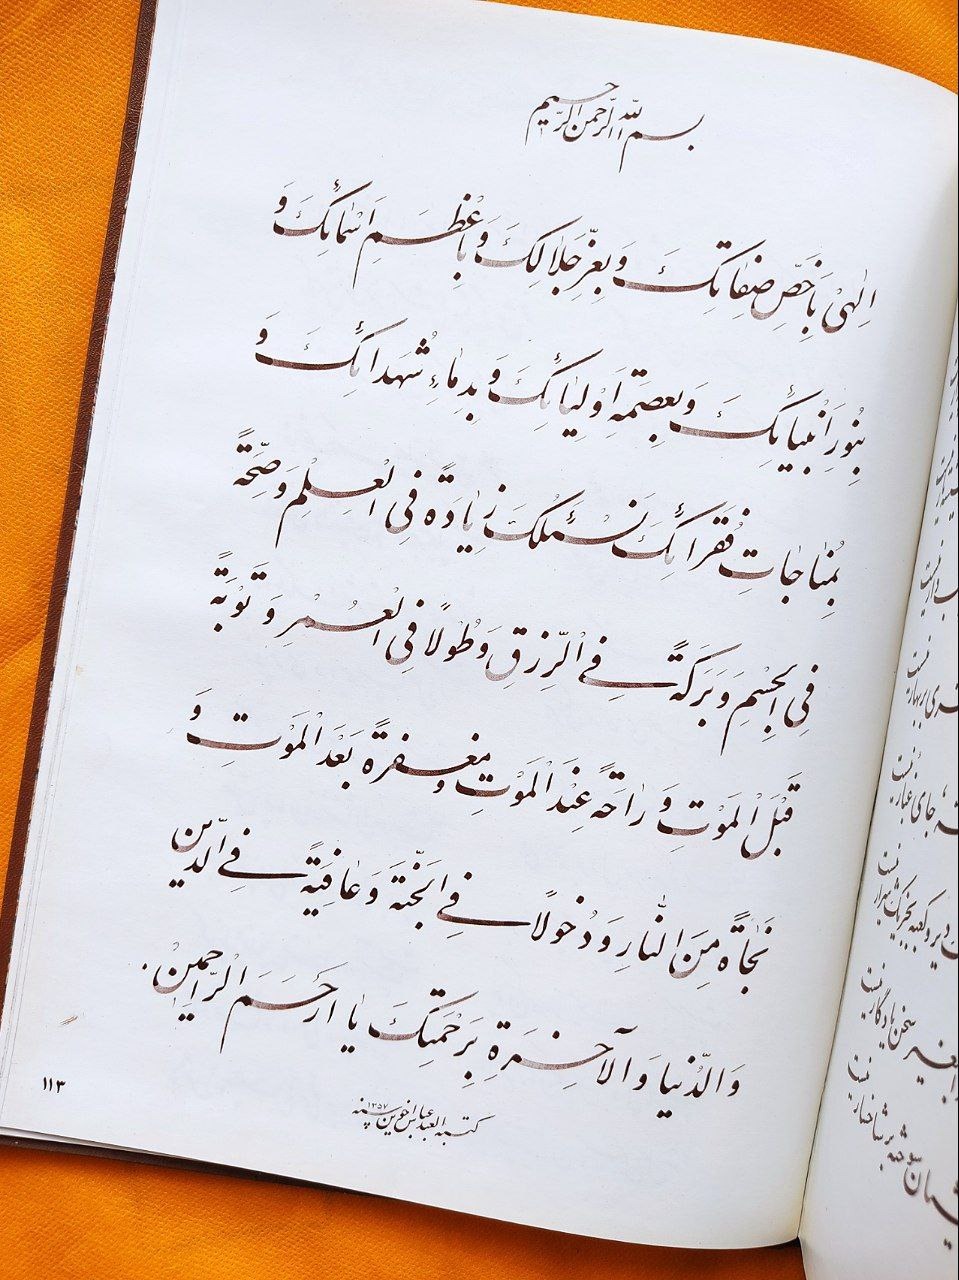 بسم الله الرحمن الرحیم
اِلٰهی بِاَخَصِّ صِفٰاتِکَ وَ بِعِزِّ جَلٰالِکَ وَ بِاَعْظَمِ اَسْمٰائِکَ وَ
بِنُورِ اَنْبِیٰائِکَ وَ بِعِصْمَةِ اَوْلِیٰائِکَ وَ بِدِمٰاءِ شُهَدٰائِکَ وَ
بِمُنٰاجٰاتِ فُقَرٰائِکَ نَسْئَلُکَ زِیٰادَةً فِی الْعِلْمِ وَ صِحَّةً
فِی الْجِسْمِ وَ بَرَکَةً فِی الْرِّزْقِ وَ طُولاً فِی الْعُمْرِ وَ تَوْبَةً
قَبْلَ الْمَوْتِ وَ رٰاحَةً عِنْدَ الْمَوْتِ وَ مَغْفِرَةً بَعْدَ الْمَوْتِ وَ
نَجٰاةً مِنَ النّٰارِ وَ دُخُولاً فِی الْجَنَّةَ وَ عٰافِیَةً فِی الدّینِ
وَ الدُّنیٰا وَ الْآخِرَةِ بِرَحْمَتِکَ یٰا اَرْحَمَ الرّٰاحِمینَ.
کتبه العبد عباس اخوین سنه ۱۳۵۷
۱۱۳